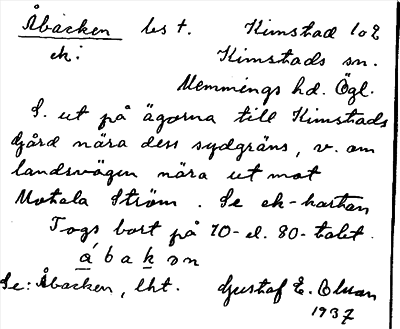 Åbacken bs t. Kimstad 1 o 2
ek: Kimstads sn.
Memmings hd. Ögl.
L. ut på ägorna till Kimstads
gård nära dess sydgräns, v. om
landsvägen nära ut mot
Motala Ström. Se ek-kartan
Togs bort på 70- el. 80-talet.
ábakən
Se: Åbacken, lht. Gustaf E. Olsson
1937